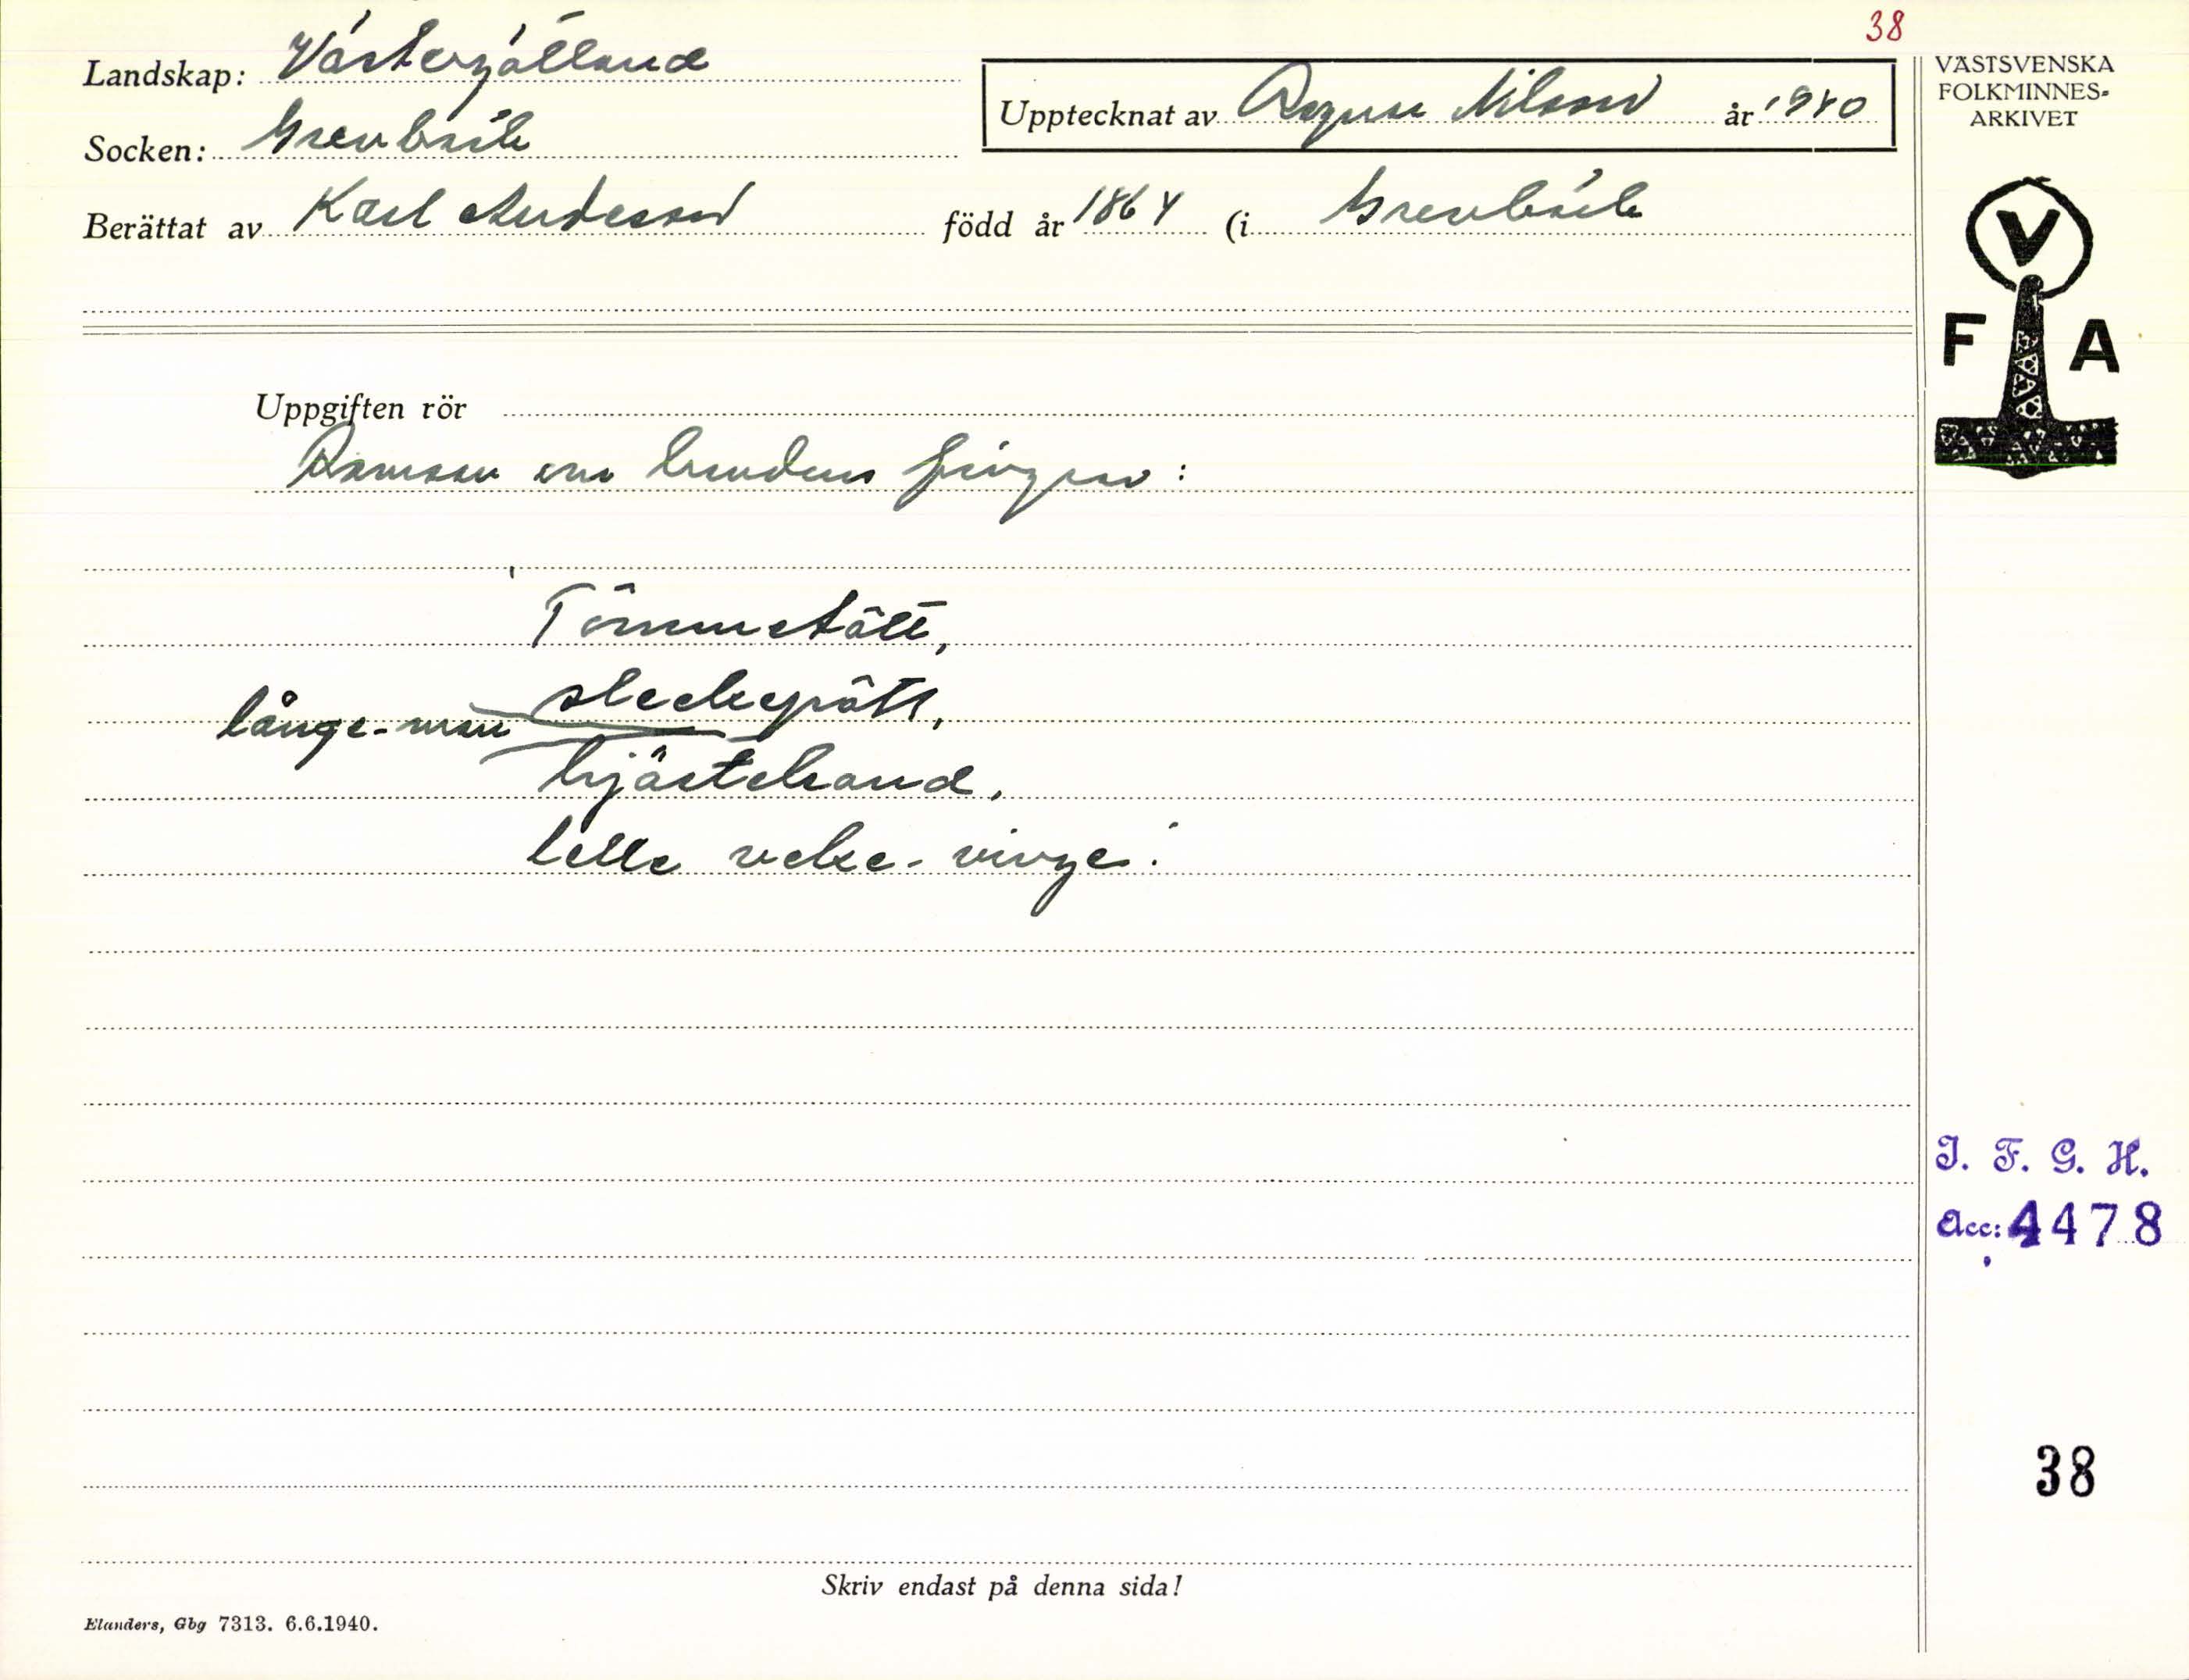 38
Landskap: Västergötland
Upptecknat av Ragnar Nilsson år 1940
Socken: Grevbäck
Berättat av Karl Andersson född år 1864 (i Grevbäck
VÄSTSVENSKA
FOLKMINNES-
ARKIVET
V
F A
Uppgiften rör
Ramsan om handens fingrar:
Tömmetått,
sleckepått,
långe-man
hjästehand,
lelle veke-vinge.
I. F. G. H.
Acc: 4478
38
Skriv endast på denna sida!
Elanders, Gbg 7313. 6.6.1940.